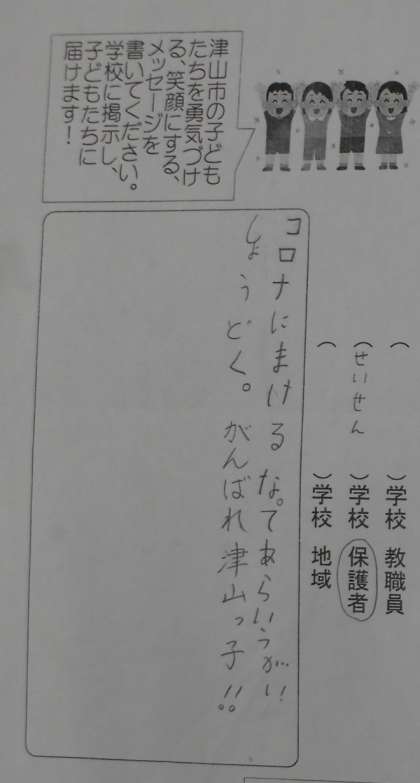 津山市の子ども
たちを勇気づけ
る、笑顔にする、
メッセージを
書いてください。
学校に掲示し、
子どもたちに
届けます！
（　　　　）学校 教職員
（せいせん　）学校 保護者
（　　　　）学校 地域
コロナにまけるな。てあらいうがい
しょうどく。がんばれ津山っ子!!